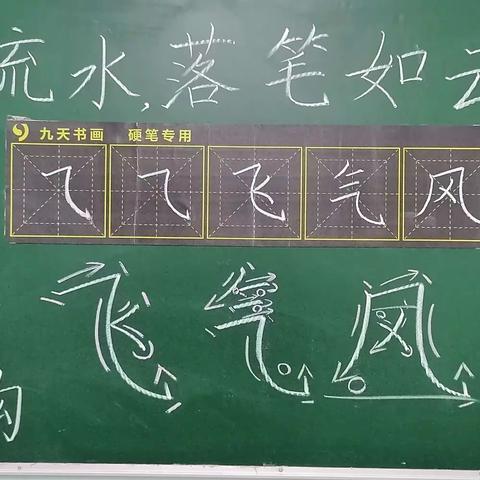 流水,落笔如云
九天书画 硬笔专用
⺄ ⺄ 飞 气 风
飞 气 风